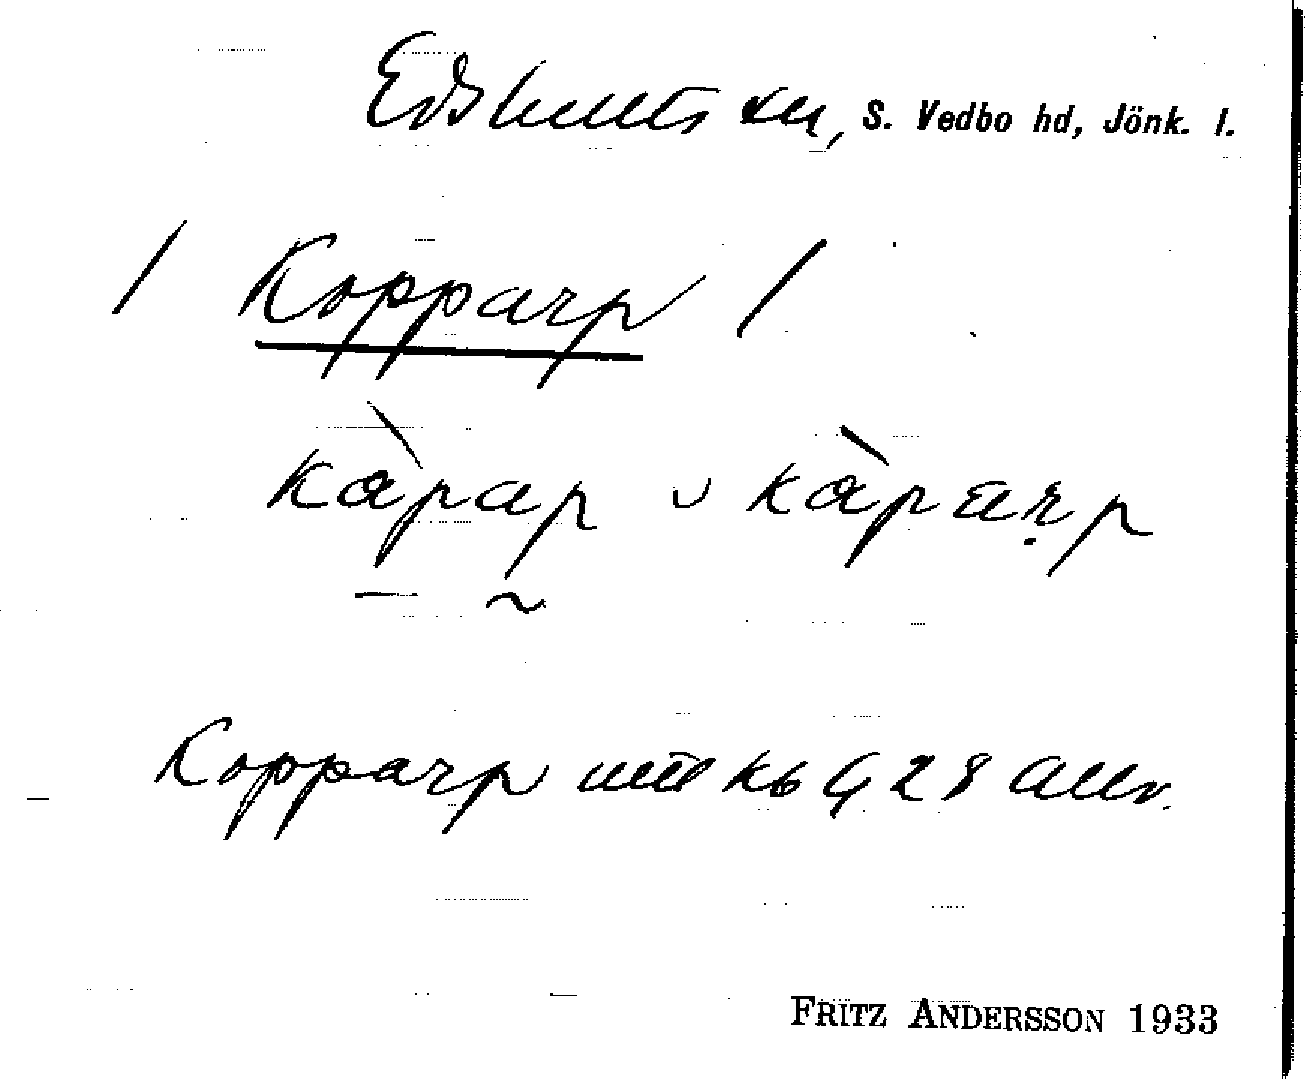 Edshults sn, S. Vedbo hd, Jönk. l.
/ Kopparp /
kàpap ᴗ kàparp
Kopparp mtl kb G 28 allm.
FRITZ ANDERSSON 1933